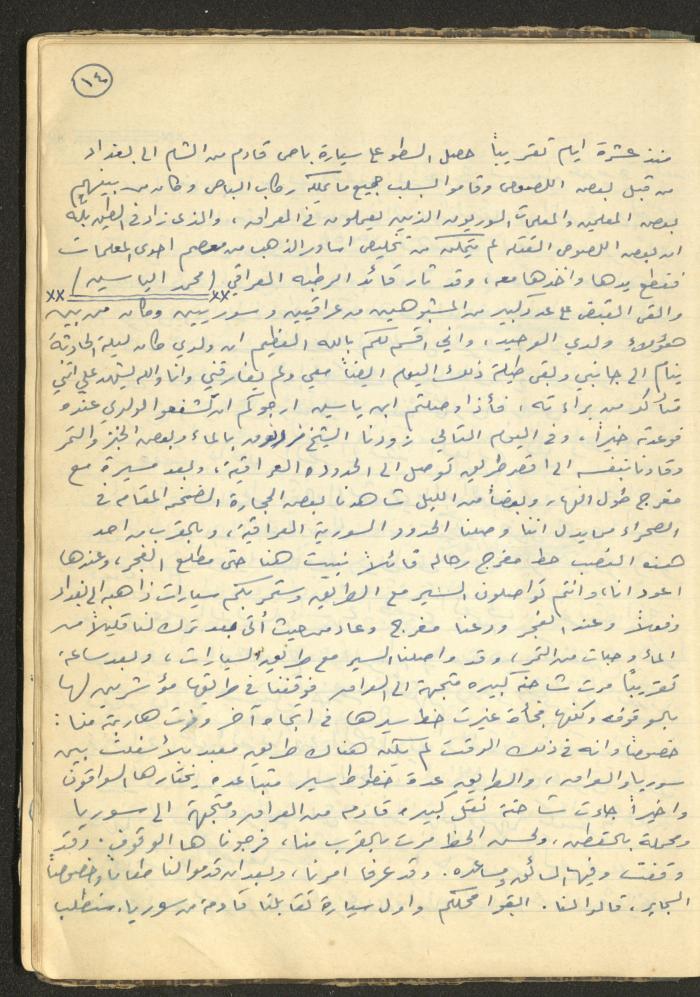 ١٤٠
منذ عشرة ايام تقريباً حصل السطو على سيارة باص قادم من الشام الى بغداد
من قبل بعض اللصوص وقاموا بسلب جميع ما يملكه ركاب الباص وكان من بينهم
بعض المعلمين والمعلمات السوريون الذين يعملون في العراق، والذي زاد في الطين بلّه
ان بعض اللصوص القتله لم يتمكن من تخليص اساور الذهب من معصم احدى المعلمات
فقطع يدها واخذها معه، وقد ثار قائد الرطبه العراقي (محمد الياسين)
والقى القبض على عدد كبير من المشبوهين من عراقيين وسوريين وكان من بين
هؤلاء ولدي الوحيد، واني اقسم لكم بالله العظيم ان ولدي كان ليلة الحادثة
ينام الى جانبي وبقى طيلة ذلك اليوم ايضاً معي ولم يفارقني وانا والله يشهد علي انني
متأكد من براءته، فأذا وصلتم ابن ياسين ارجوكم ان تشفعوا لولدي عنده
فوعدته خيراً، وفي اليوم التالي زودنا الشيخ بالماء وبعض الخبز والتمر
وقادنا بنفسه الى اقصر طريق توصل الى الحدود العراقية، وبعد مسيرة مع
مفرج طول النهار وبعضاً من الليل شاهدنا بعض الحجارة الضخمه المقامه في
الصحراء مما يدل اننا وصلنا الحدود السورية العراقية، وبالقرب من احد
هذه النصب حط مفرج رحاله قائلاً نبيت هنا حتى مطلع الفجر، وعندها
اعود انا، وانتم تواصلون السير مع الطريق وستمر بكم سيارات ذاهبه الى بغداد
وفعلاً وعند الفجر ودعنا مفرج وعاد من حيث أتى بعد ترك لنا قليلاً من
الماء وحبات من التمر، وقد واصلنا السير مع طريق السيارات، وبعد ساعة
تقريباً مرت شاحنة كبيره متجهة الى العراق فوقفنا في طريقها مؤشرين لها
بالوقوف ولكنها فجأة غيرت خط سيرها في اتجاه آخر وفرت هاربة منا:
خصوصاً وانه في ذلك الوقت لم يكن هناك طريق معبد بالأسفلت بين
سوريا والعراق، والطريق عدة خطوط سير متباعده يختارها السواقون
واخيراً جاءت شاحنة نقل كبيره قادمه من العراق ومتجهة الى سوريا
ومحملة بالقطن، ولحسن الحظ مرت بالقرب منا، فرجوناها الوقوف. وقد
وقفت وفيها السائق ومساعده. وقد عرفا امرنا، وبعد ان قدموا لنا طعاماً وخصوصاً
السجاير، قالوا لنا. ابقوا محلكم واول سيارة تقابلنا قادمة من سوريا، سنطلب